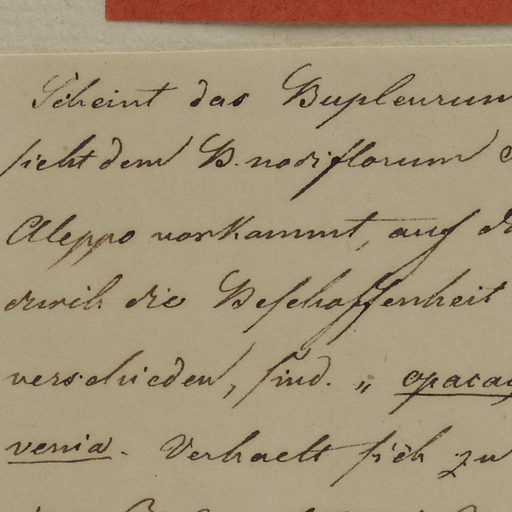 Scheint das Bupleurum
sieht dem B. nodiflorum
Aleppo vorkammt, auf
durch die Beschaffenheit
verschieden, sind. „ opaca
venia. Verhaelt sich zu